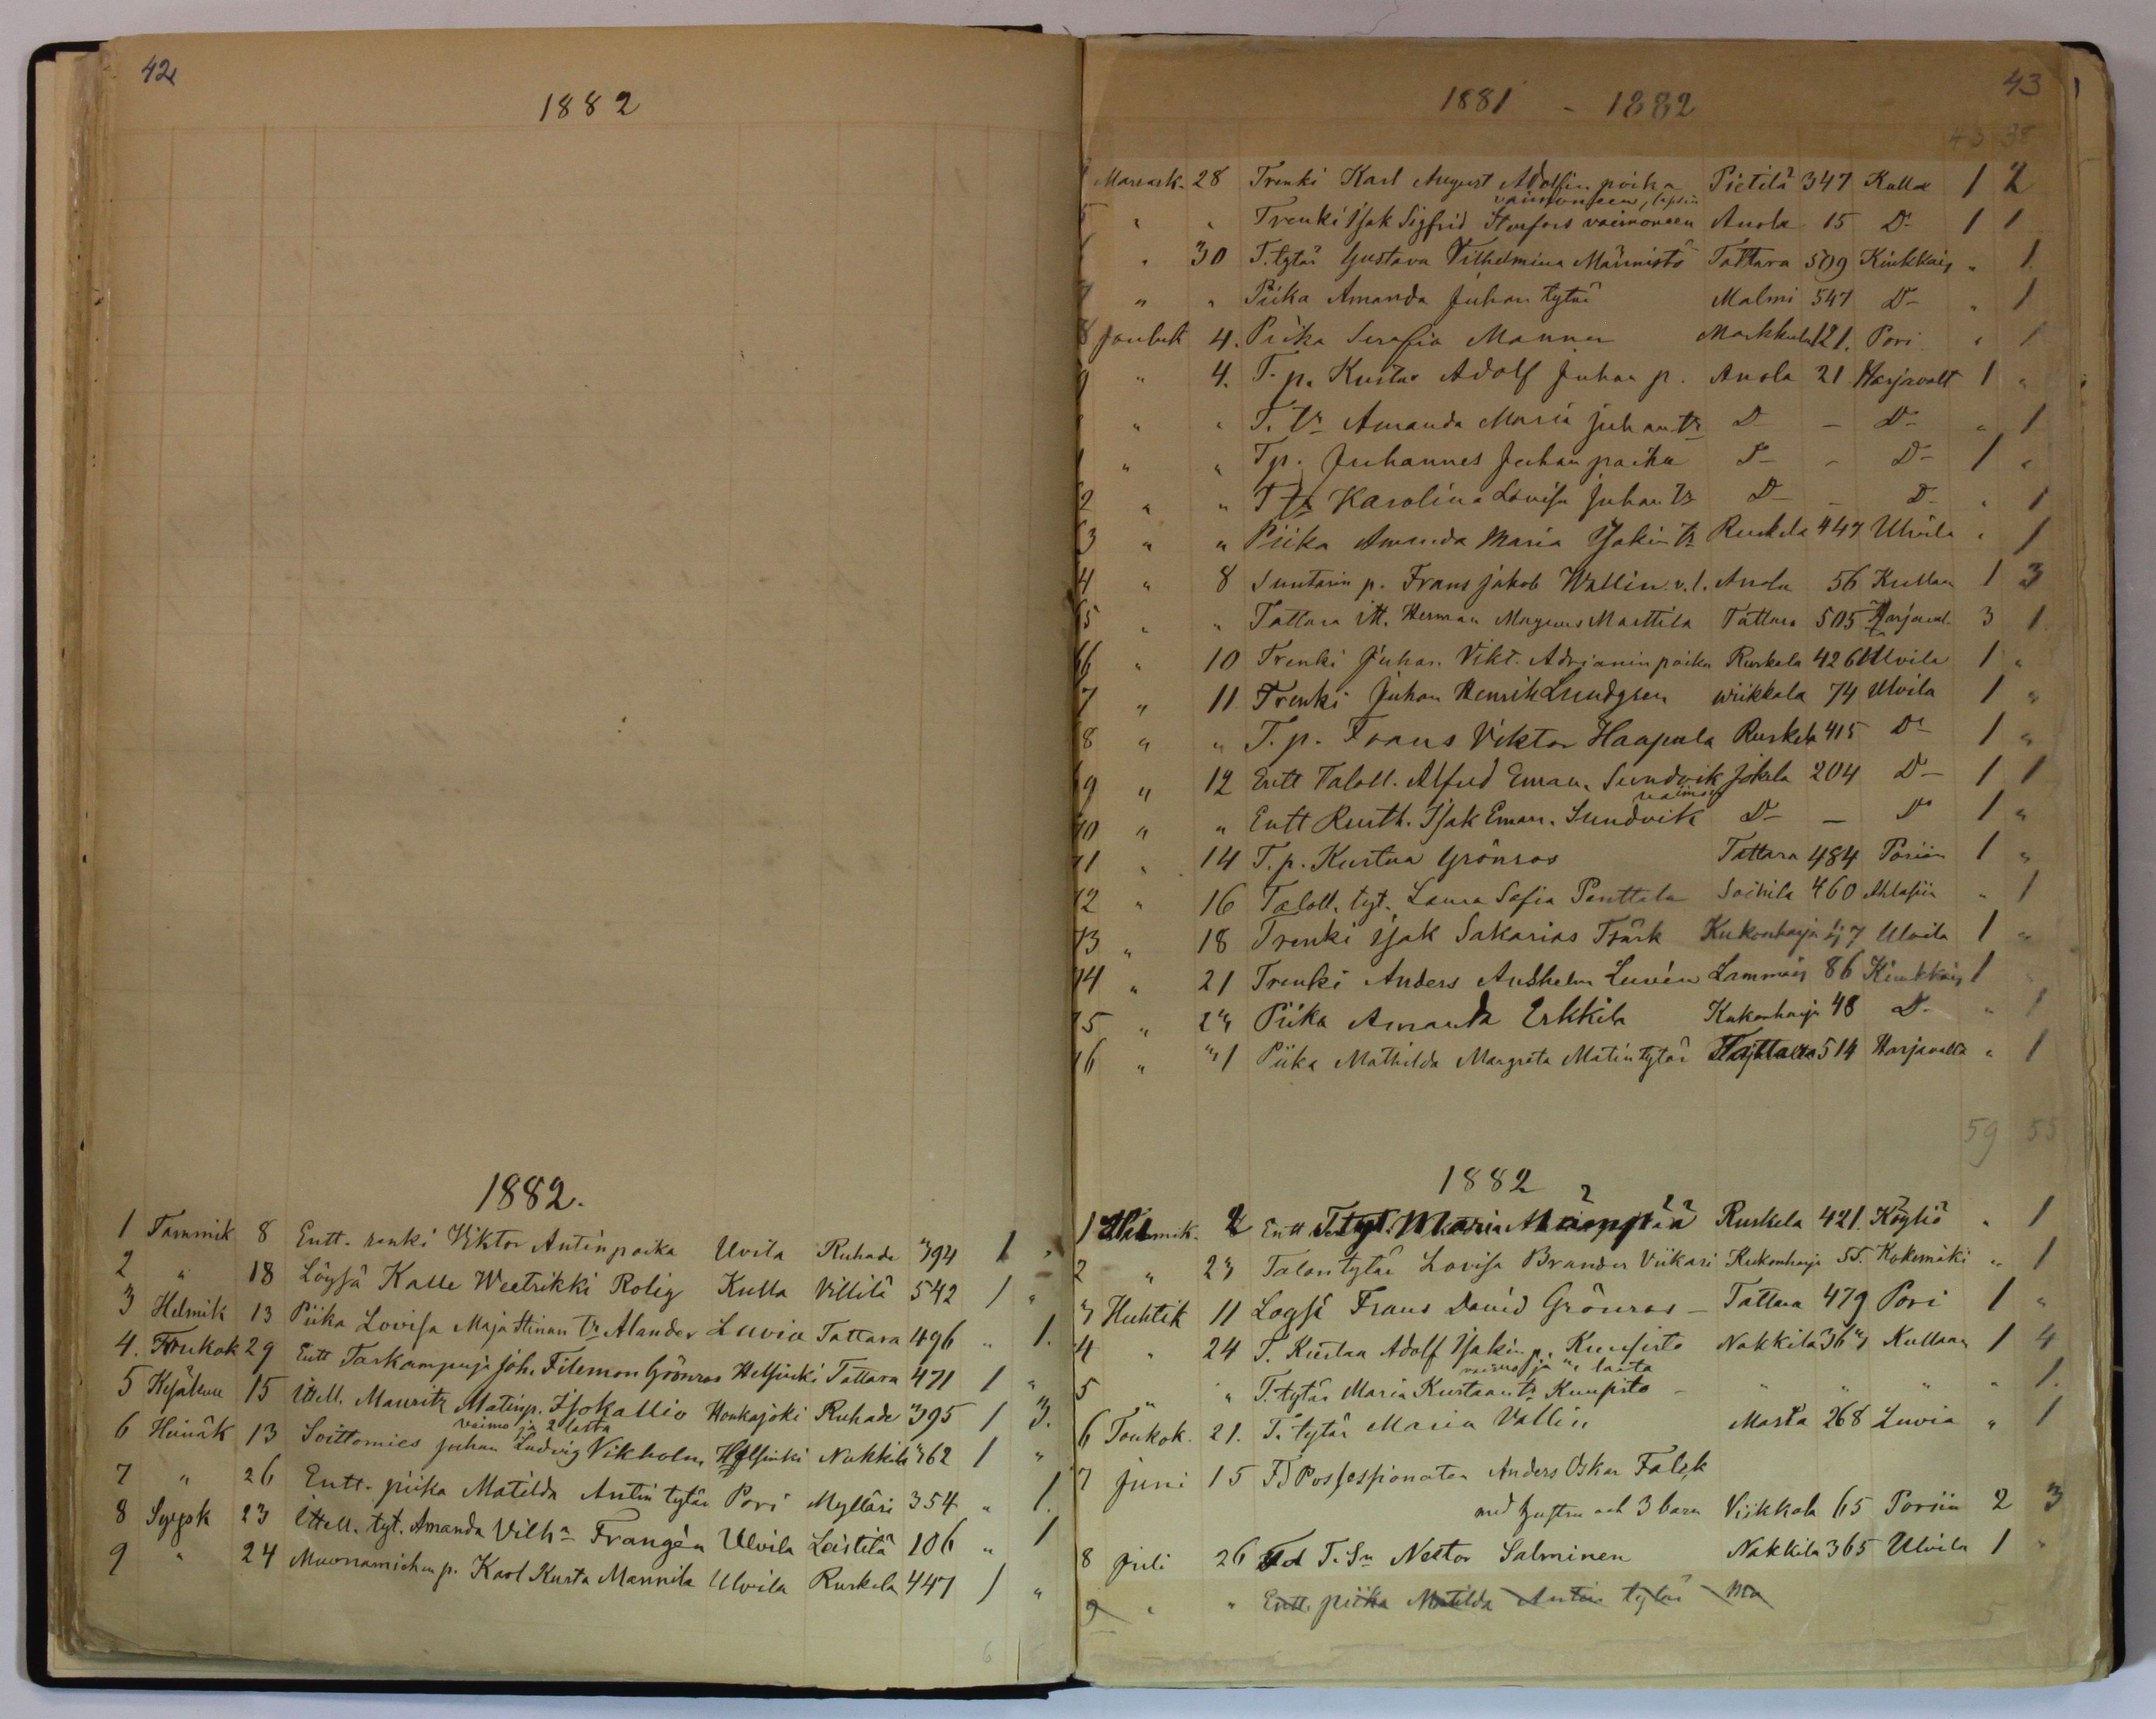 42
1882
1882.
1 Tammik 8 Entt. renki Viktor Antinpoika Ulvila Ruhade 394 1 "
2 " 18 Löysä Kalle Weetrikki Rolig Kulla Villilä 542 1 "
3 Helmik 13 Piika Lovisa Maja Hinan tr Alander Luvia Tattara 496 " 1.
4. Toukok 29 Entt Torkampuja Joh. Filemon Grönros Helsinki Tattara 471 1 "
5 Kesäkuu 15 Ittell. Mauritz Matinp. Isokallio Honkajoki Ruhade 395 1 3.
vaimo ja 2 lasta
6 Heinäk 13 Soittomies Juhan Ludvig Vikholm Helsinki Nakkila 362 1 "
7 " 26 Entt. piika Matilda Antin tytär Pori Mylläri 354 " 1.
8 Syysk 23 Ittell. tyt. Amanda Vilha Frangén Ulvila Leistilä 106 " 1
9 " 24 Muonamiehen p. Karl Kusta Mannila Ulvila Ruskela 447 1 "
6
43
1881 - 1882
43 38
Marrask. 28 Trenki Karl August Adolfin poika Pietilä 347 Kulla 1 2
vaimoneen, lapsin
5 " " Trenki Isak Sigfrid Storfors vaimoneen Anola 15 D- 1 1
" 30 T. tytär Gustava Vilhelmina Männistö Tattara 509 Kiukkais " 1.
" " Piika Amanda Juhan tytär Malmi 547 D- " 1
8 Jouluk 4. Piika Serafia Manner Markkula 121. Pori " 1
9 " 4. T. p. Kustaa Adolf Juhan p. Anola 21 Harjavalt 1 "
" " T. tr Amanda Maria Juhan tr D - D- " 1
1 " " T p. Juhannes Juhan poika D- - D- 1 "
2 " " T tr Karolina Lovisa Juhan tr D- - D- " 1
3 " " Piika Amanda Maria Isakin tr Ruskela 447 Ulvila " 1
4 " 8 Suutarin p. Frans Jakob Wallin v. l. Anola 56 Kullaa 1 3
5 " " Tattara itt. Herman Magnus Marttila Tattara 505 Harjaval. 3 1
6 " 10 Trenki Juhan Vikt. Adrianin poika Ruskela 426 Ulvila 1 "
7 " 11 Trenki Juhan Henrik Lundgren Wiikkala 74 Ulvila 1 "
8 " " T. p. Frans Viktor Haapala Ruskela 415 D- 1 "
9 " 12 Entt Taloll. Alfred Eman. Sundvik Jokela 204 D- 1 1
vaimo
10 " " Entt Rusth. Isak Eman. Sundvik D- - D 1 "
11 " 14 T. p. Kustaa Grönros Tattara 484 Poriin 1 "
12 " 16 Taloll. tyt. Laura Sofia Penttala Soinila 460 Ahlaisiin " 1
13 " 18 Trenki Isak Sakarias Träsk Kukonharja 47 Ulvila 1 "
14 " 21 Trenki Anders Anshelm Luvén Lammais 86 Kiukkais 1
15 " 23 Piika Amanda Erkkila Kukonharja 48 D- " 1
16 " 31 Piika Mathilda Margreta Matin tytär Tattara 514 Harjavalta " 1
59 55
1882
1 Helmik. 2 Entt T. tyt. Maria Mäenpää Ruskela 421. Köyliö " 1
2 " 23 Talon tytär Lovisa Brander Viikari Kukonharja 55. Kokemäki " 1
3 Huhtik 11 Logsi Frans David Grönros - Tattara 479 Pori 1 "
4 " 24 T. Kustaa Adolf Isakin p. Kuusisto Nakkila 363 Kullaan 1 4
vaimo ja 3 lasta
5 " " T. tytär Maria Kustaan tr Kuusisto - " " " " 1.
6 Toukok. 21. T. tytär Maria Vallin Masia 268 Luvia " 1
7 Juni 15 Fd Possessionaten Anders Oskar Falck
med hustru och 3 barn Viikkala 65 Poriin 2 3
8 Juli 26 Fd T. Sn Nestor Salminen Nakkila 365 Ulvila 1 "
9 " " Entt. piika Matilda Antin tytär Ma
5